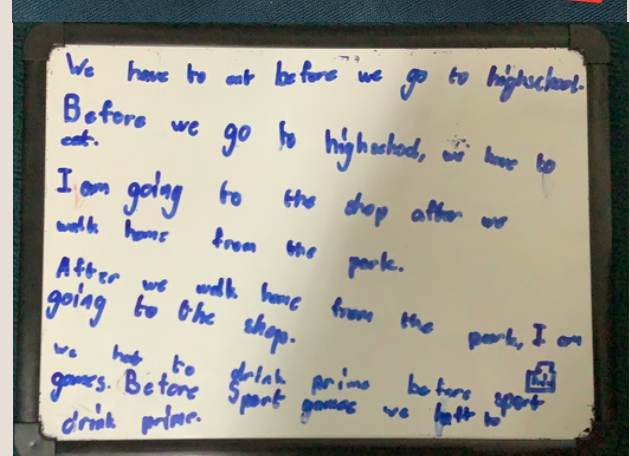 We have to eat before we go to highschool.
Before we go to highschool, we have to
eat.
I am going to the shop after we
walk home from the park.
After we walk home from the park, I am
going to the shop.
we haf to drink prime before sport
games. Before Sport games we haft to
drink prime.